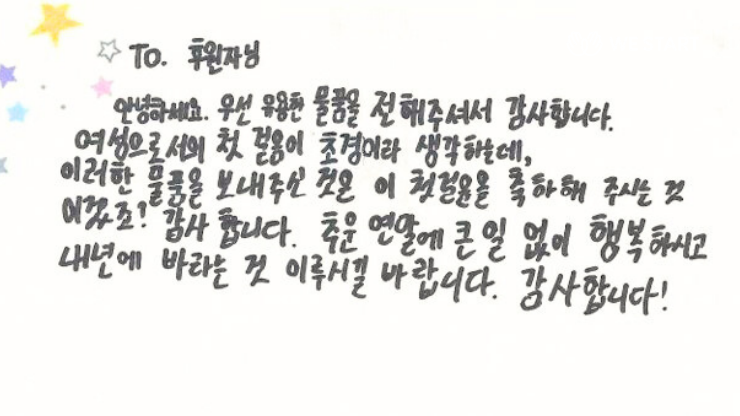 To. 후원자님
안녕하세요. 우선 유용한 물품을 전해주셔서 감사합니다.
여성으로서의 첫 걸음이 초경이라 생각하는데,
이러한 물품을 보내주신 것은 이 첫걸음을 축하해 주시는 것
이겠죠! 감사합니다. 추운 연말에 큰 일 없이 행복하시고
내년에 바라는 것 이루시길 바랍니다. 감사합니다!